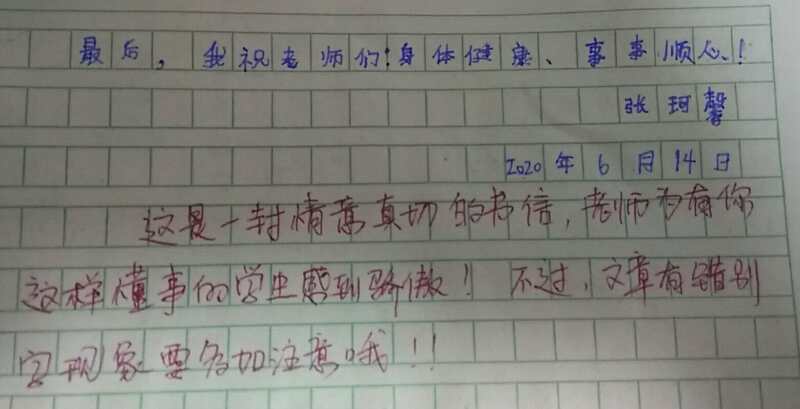 最后，我祝老师们：身体健康、事事顺心！
张珂馨
2020年6月14日
这是一封情意真切的书信，老师为有你
这样懂事的学生感到骄傲！不过，文章有错别
字现象要多加注意哦！！